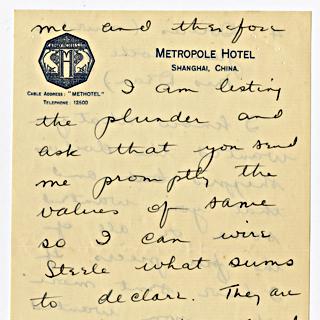 me and therefore
METROPOLE HOTEL
SHANGHAI, CHINA.
CABLE ADDRESS: "METHOTEL"
TELEPHONE: 12500
I am listing
the plunder and
ask that you send
me promptly the
values of same
so I can wire
Steele what sums
to declare. They are